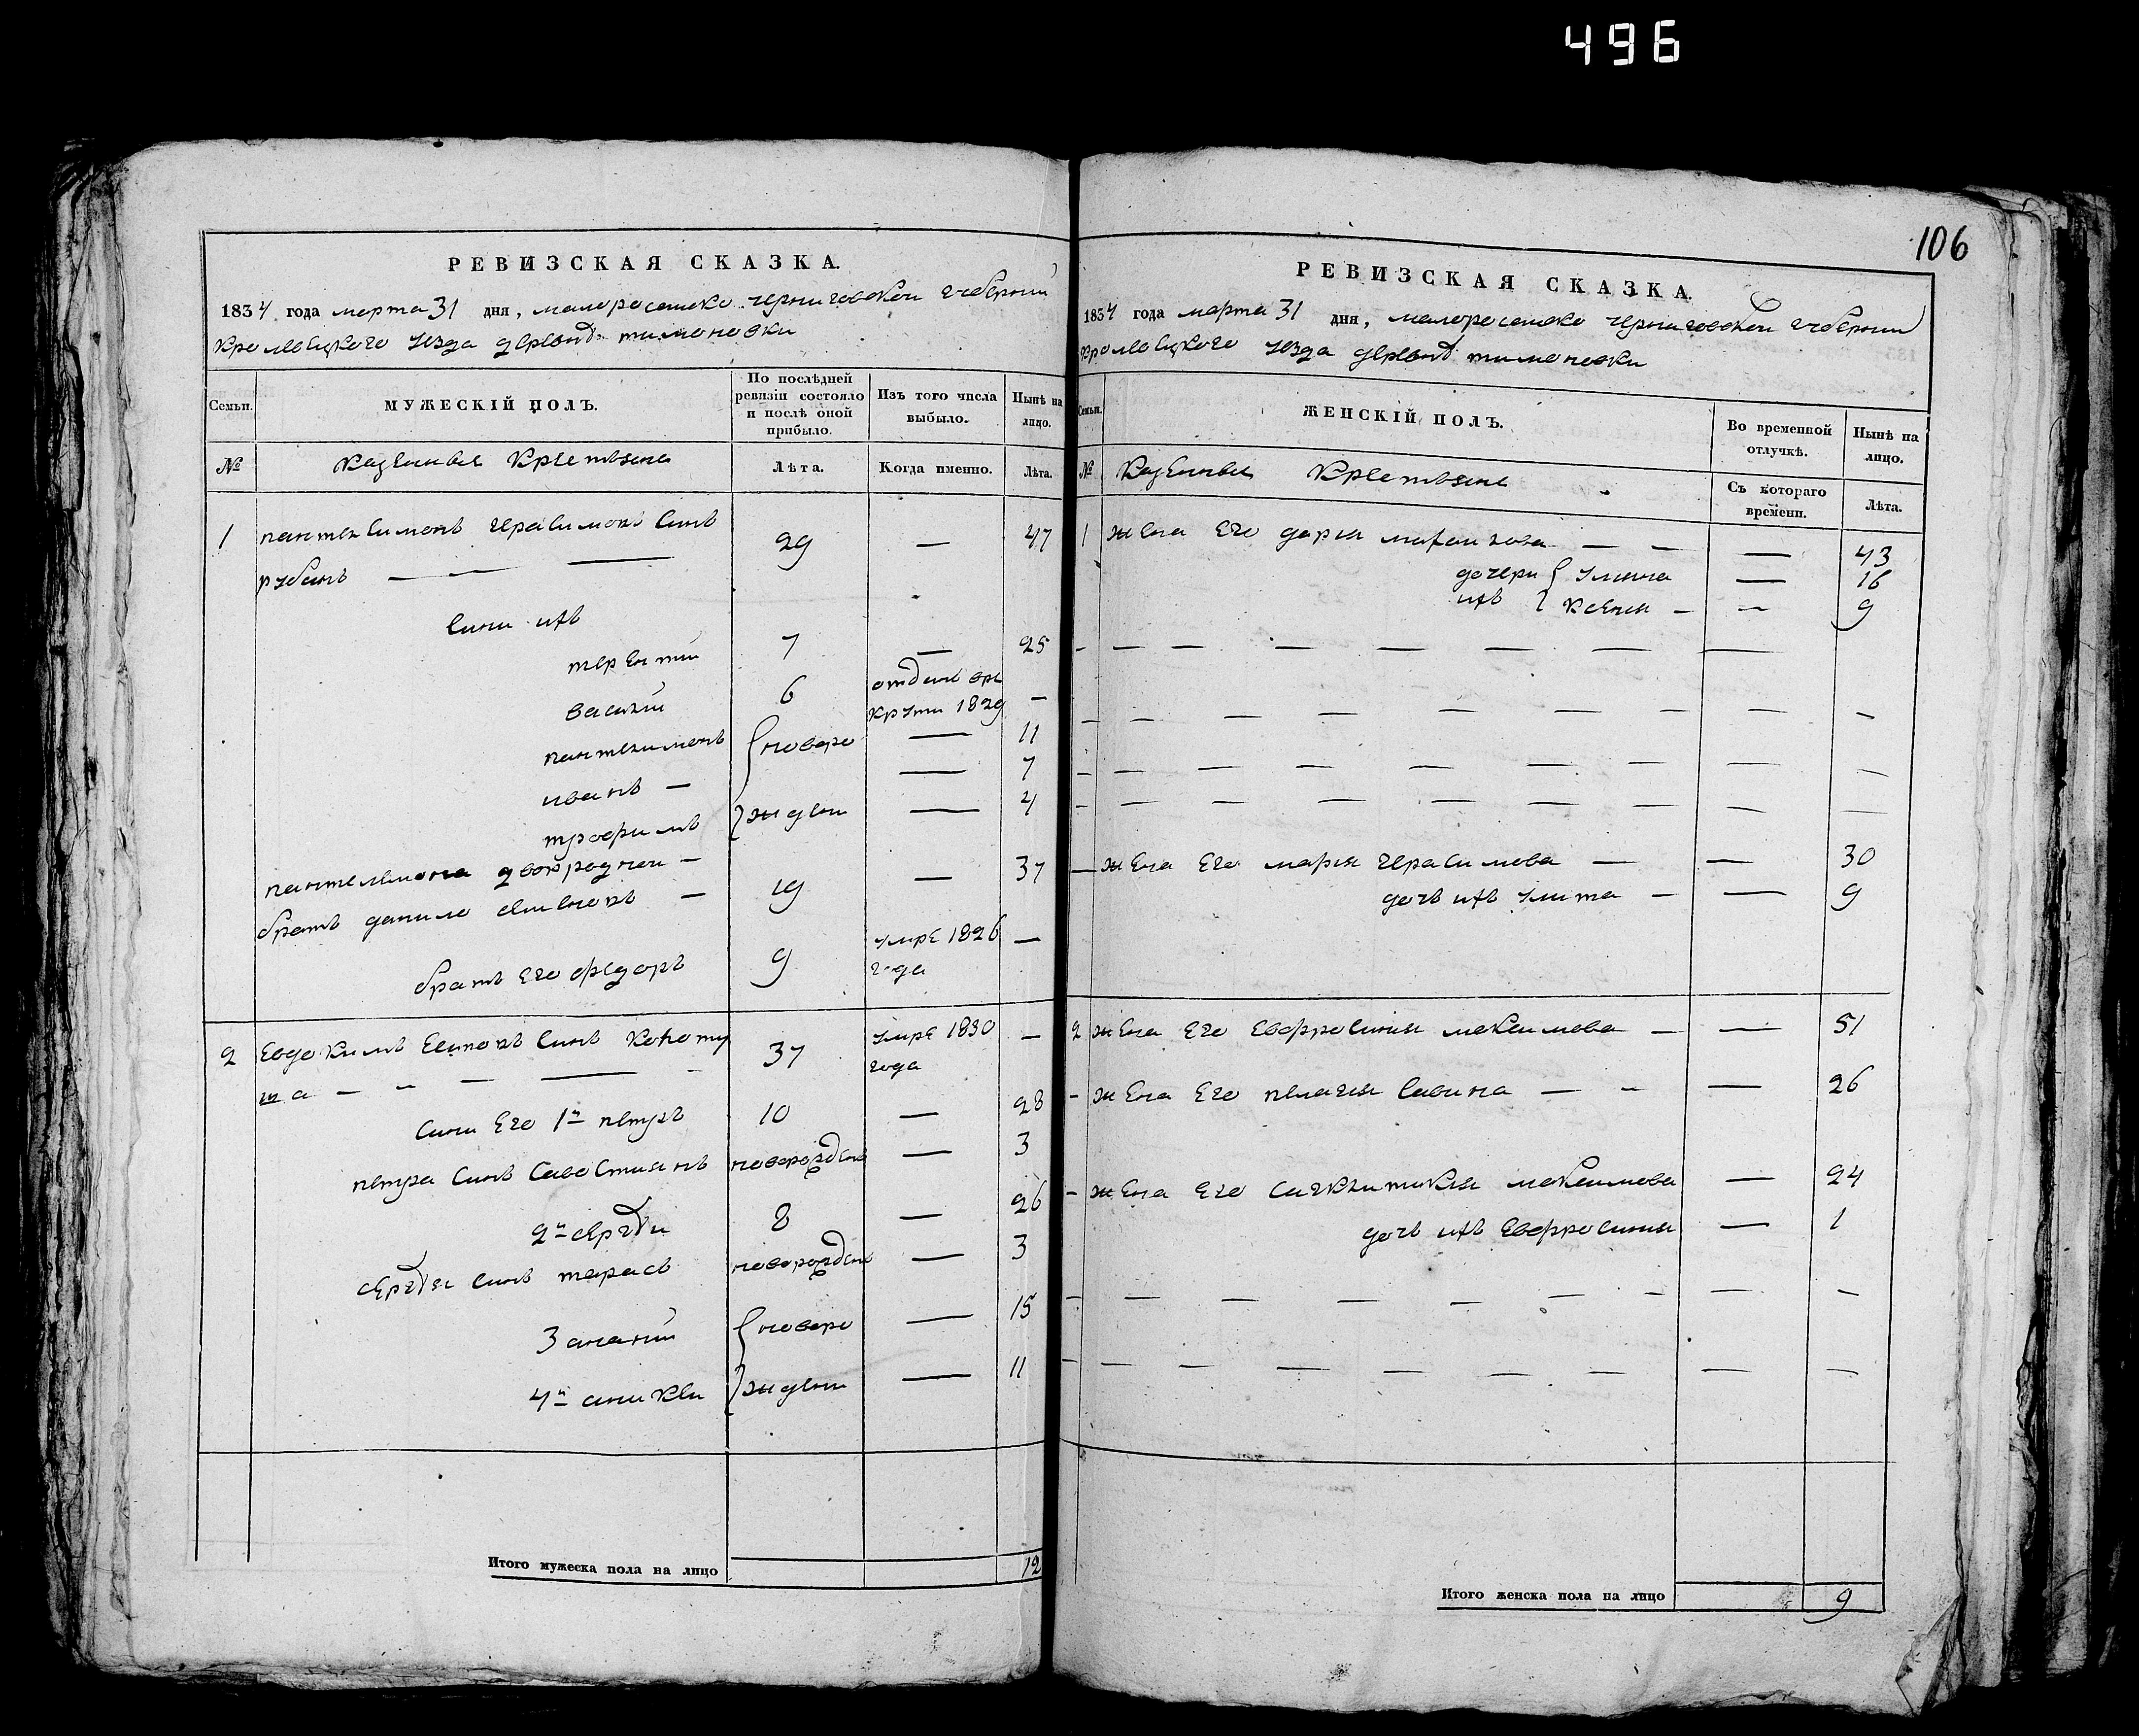 496
106
РЕВИЗСКАЯ СКАЗКА.
1834 года марта 31 дня, малоросейско черниговской губернии
Кролевецкого уезда деревнѣ тимоновки
Семьи.
МУЖЕСКІЙ ПОЛЪ.
По послѣдней ревизіи состояло и послѣ оной прибыло.
Изъ того числа выбыло.
Нынѣ на лицо.
№
Казенные Крестьяне
Лѣта.
Когда именно.
Лѣта.
1 пантелимонъ герасимовъ синъ 29 — 47
рубанъ — — —
сини ихъ
терентий 7 — 25
василий 6 отдань вре —
круты 1829
пантелимонъ новоро — 11
иванъ — — 7
трофимъ жденн — 4
пантелемона двоюродней —
братъ данило 19 — 37
братъ его федоръ 9 умре 1826 —
года
2 евдокимъ синъ 37 умре 1830 —
ша — — — — года
сини его 1й петръ 10 — 28
петра синъ савостиянъ новорожденъ — 3
2й сергѣи 8 — 26
сергѣя синъ тарасъ новорожденъ — 3
3 ананий новоро — 15
4й аникеи жденн — 11
Итого мужеска пола на лицо 12
РЕВИЗСКАЯ СКАЗКА.
1834 года марта 31 дня, малоросейско черниговской губернии
Кролевецкого уезда деревнѣ тимоновки
Семьи.
ЖЕНСКІЙ ПОЛЪ.
Во временной отлучкѣ.
Нынѣ на лицо.
№
Казенные Крестьяне
Съ котораго времени.
Лѣта.
1 жена его дария — — — 43
дочери улияна — 16
ихъ ксения — — 9
— жена его мария герасимова — — 30
дочь ихъ улита — — 9
2 жена его евфросиния максимова — — 51
- жена его пелагия савина — — — 26
- жена его синклитикия максимова — 24
дочь ихъ евфросиния — 1
Итого женска пола на лицо 9